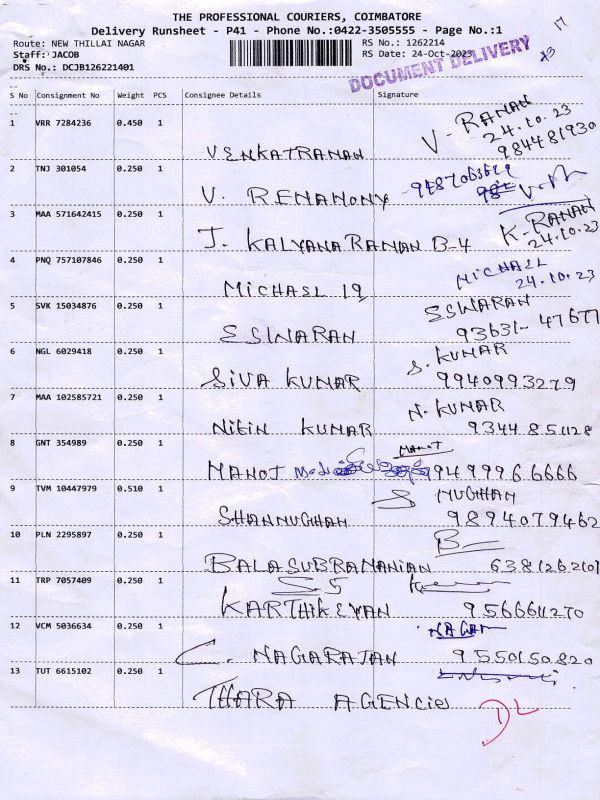 THE PROFESSIONAL COURIERS, COIMBATORE
Delivery Runsheet - P41 - Phone No.:0422-3505555 - Page No.:1
Route: NEW THILLAI NAGAR RS No.: 1262214
Staff: JACOB RS Date: 24-Oct-2023
DRS No.: DCJB126221401
DOCUMENT DELIVERY
S No Consignment No Weight PCS Consignee Details Signature
1 VRR 7284236 0.450 1 VENKATRANAN V-RANAN
24.10.23
984481930
2 TNJ 301054 0.250 1 V. RENANONY
3 MAA 571642415 0.250 1 J. KALYANARANAN B-4 K-RANAN
24.10.23
4 PNQ 757107846 0.250 1 MICHASL 19 MICHASL
24.10.23
5 SVK 15034876 0.250 1 ESWARAN ESWARAN
93631-47677
6 NGL 6029418 0.250 1 SIVA KUNAR S. KUNAR
9940993279
7 MAA 102585721 0.250 1 NITIN KUNAR N. KUNAR
9344851128
8 GNT 354989 0.250 1 MANOJ MANOJ
9499966666
9 TVM 10447979 0.510 1 SHANNUGHAN S NUGHAN
9894079462
10 PLN 2295897 0.250 1 BALASUBRANANIAN B
6381262107
11 TRP 7057409 0.250 1 KARTHIKEYAN
9566611270
12 VCM 5036634 0.250 1 C. NAGARAJAN NAGAR
9550150820
13 TUT 6615102 0.250 1 THARA AGENCIES
DL